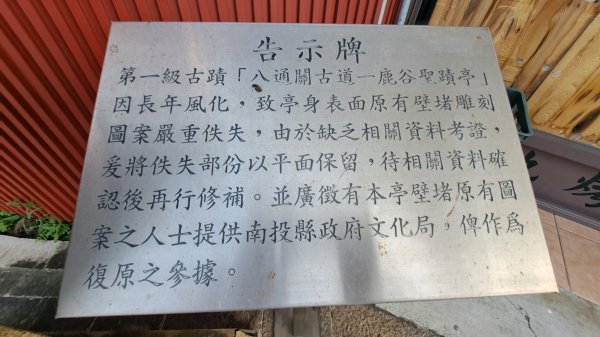 告示牌
第一級古蹟「八通關古道一鹿谷聖蹟亭」
因長年風化，致亭身表面原有壁堵雕刻
圖案嚴重佚失，由於缺乏相關資料考證，
爰將佚失部份以平面保留，待相關資料確
認後再行修補。並廣徵有本亭壁堵原有圖
案之人士提供南投縣政府文化局，俾作為
復原之參據。